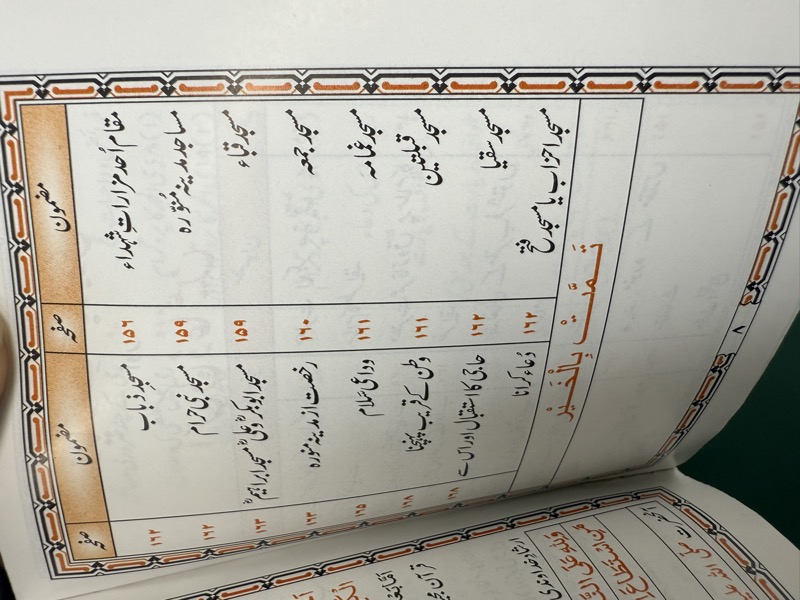 مضمون صفحہ مضمون صفحہ
مقام اُحد مزاراتِ شہداء ۱۵۶ مسجد ذباب ۱۶۲
مساجد مدینہ منوّرہ ۱۵۹ مسجد بنی حرام ۱۶۲
مسجد قباء ۱۵۹ مسجد ابوبکرؓ و علیؓ مسجد ابراہیمؓ ۱۶۳
مسجد جمعہ ۱۶۰ رخصت از مدینہ منورہ ۱۶۳
مسجد غمامہ ۱۶۱ وداعی سلام ۱۶۵
مسجد قبلتین ۱۶۱ وطن کے قریب پہنچنا ۱۶۸
مسجد سقیا ۱۶۲ حاجی کا استقبال اور اس سے ۱۶۸
مسجد احزاب یا مسجد فتح ۱۶۲ دُعاء کرانا
تَمَّتْ بِالْخَیْر
۸